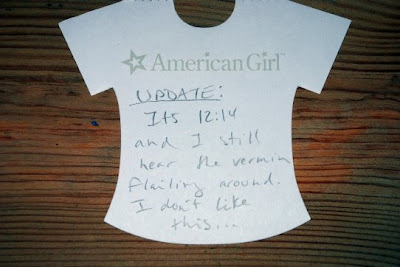 American Girl™
UPDATE:
Its 12:14
and I still
hear the vermin
flailing around.
I don't like
this...